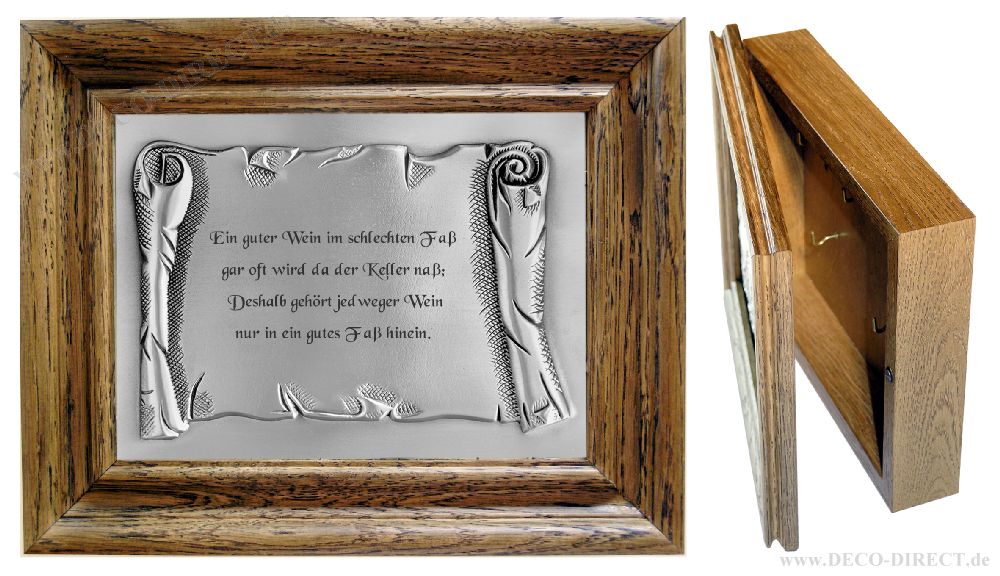 Ein guter Wein im schlechten Faß
gar oft wird da der Keller naß;
Deshalb gehört jedweger Wein
nur in ein gutes Faß hinein.
www.DECO-DIRECT.de